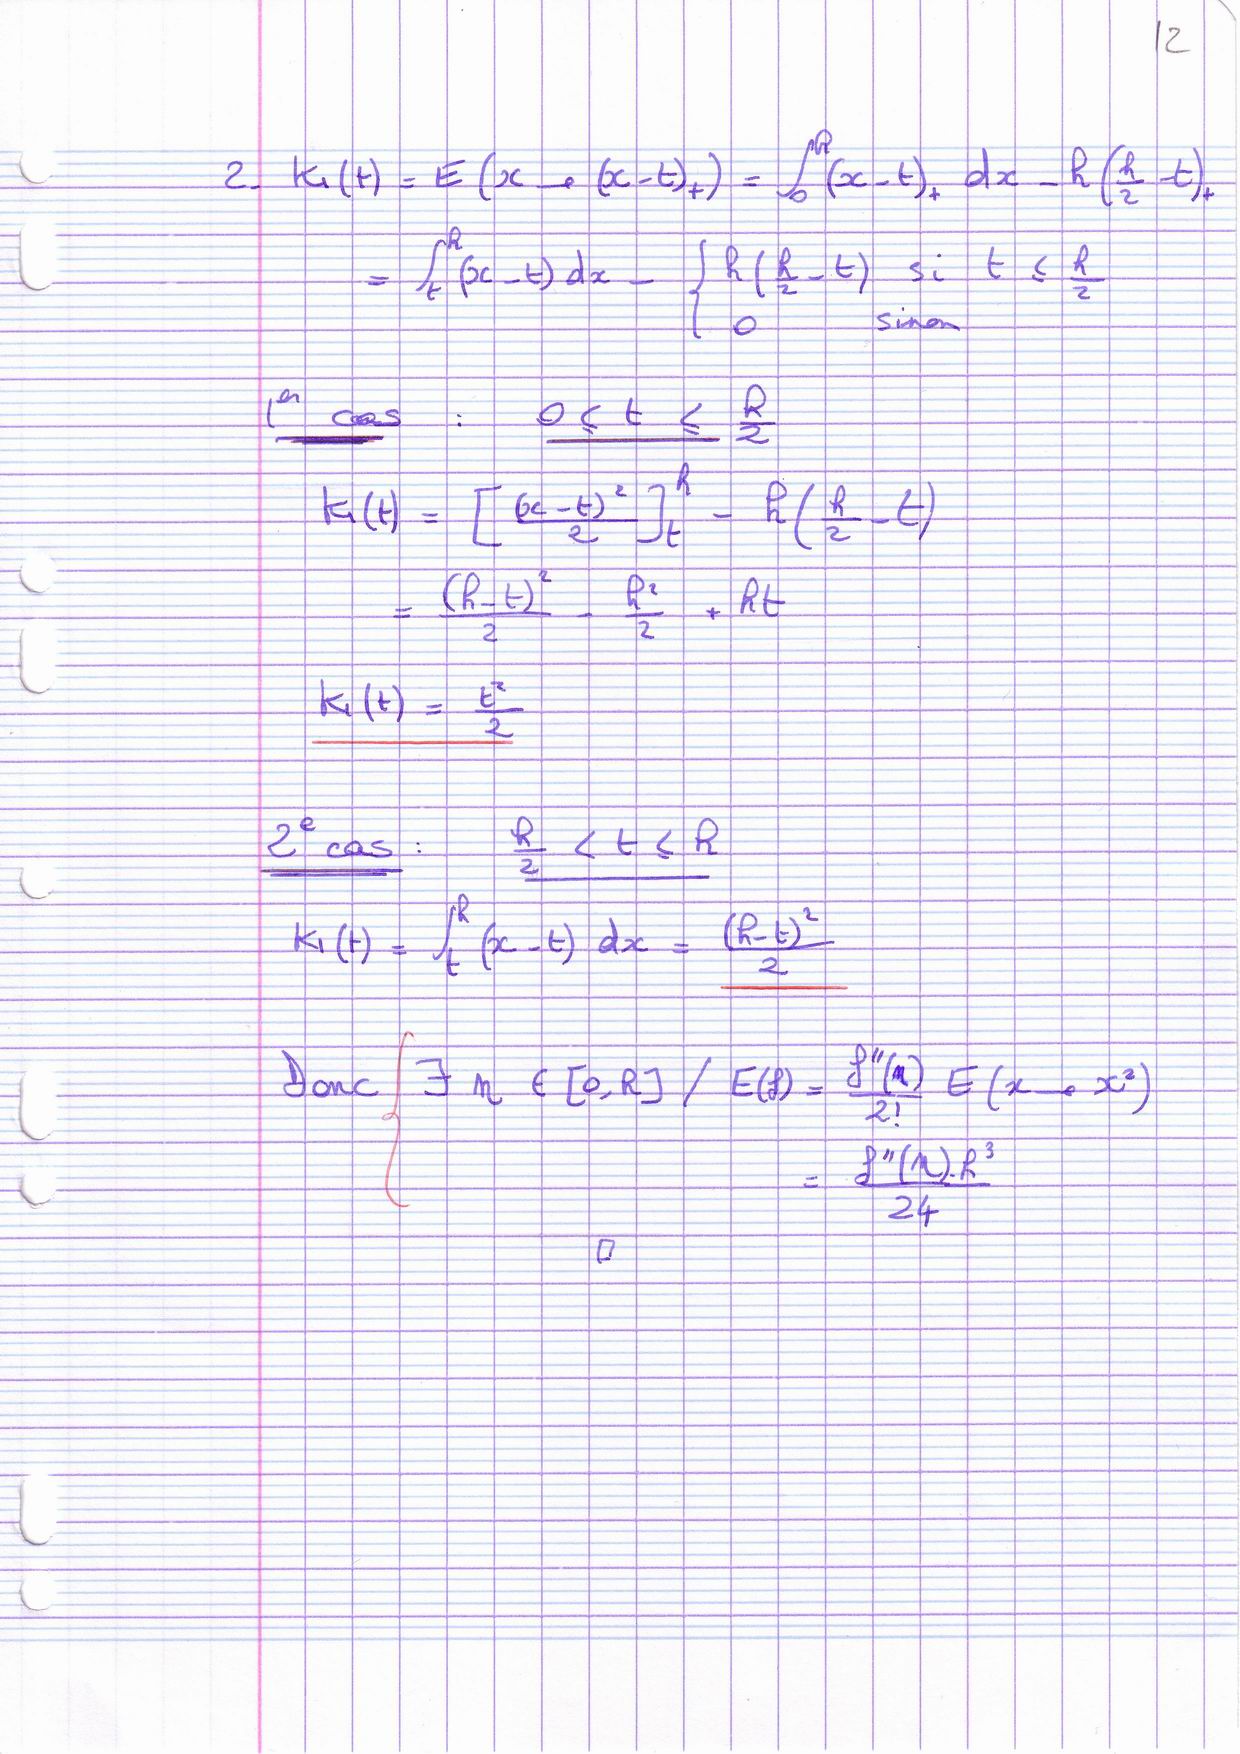 12
2. K₁(t) = E(x → (x-t)₊) = ∫₀ʰ (x-t)₊ dx - h(h/2 - t)₊
= ∫ₜʰ (x-t) dx - { h(h/2 - t) si t ≤ h/2
0 sinon
1er cas : 0 ≤ t ≤ h/2
K₁(t) = [(x-t)²/2]ₜʰ - h(h/2 - t)
= (h-t)²/2 - h²/2 + ht
K₁(t) = t²/2
2e cas : h/2 < t ≤ h
K₁(t) = ∫ₜʰ (x-t) dx = (h-t)²/2
Donc { ∃ η ∈ [0,h] / E(f) = f''(η)/2! E(x → x²)
= f''(η).h³/24
□